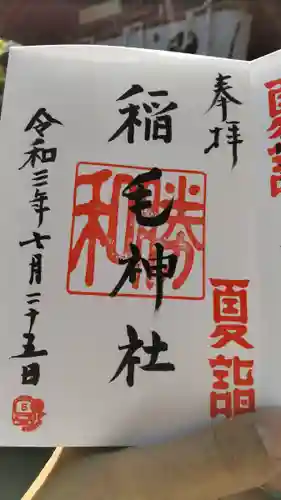 奉拝
夏詣
稲毛神社
勝和
令和三年七月二十五日
夏詣